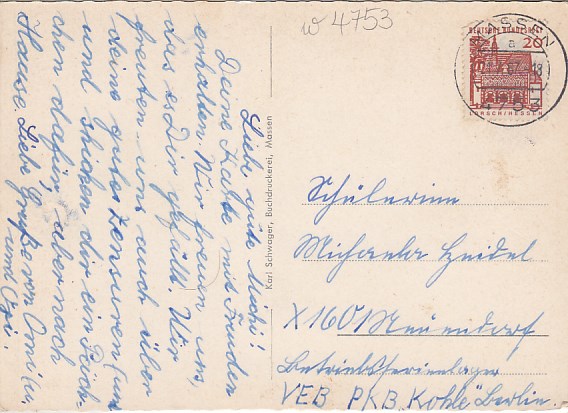 w 4753
Liebe gute Michi!
Deine Karte mit Freuden
erhalten. Wir freuen uns,
das es Dir gefällt. Wir
freuten uns auch über
deine guten Zensuren (
und schicken dir ein
chen dafür, aber nach
Hause. Liebe Grüße von Omilu.
und Opi.
Karl Schwager, Buchdruckerei, Massen
MASSEN
4753
a
DEUTSCHE BUNDESPOST
20
LORSCH/HESSEN
Schülerin
Michaela Heidel
X160 Neuendorf
Betriebsferienlager
VEB PKB „Kohle" Berlin.